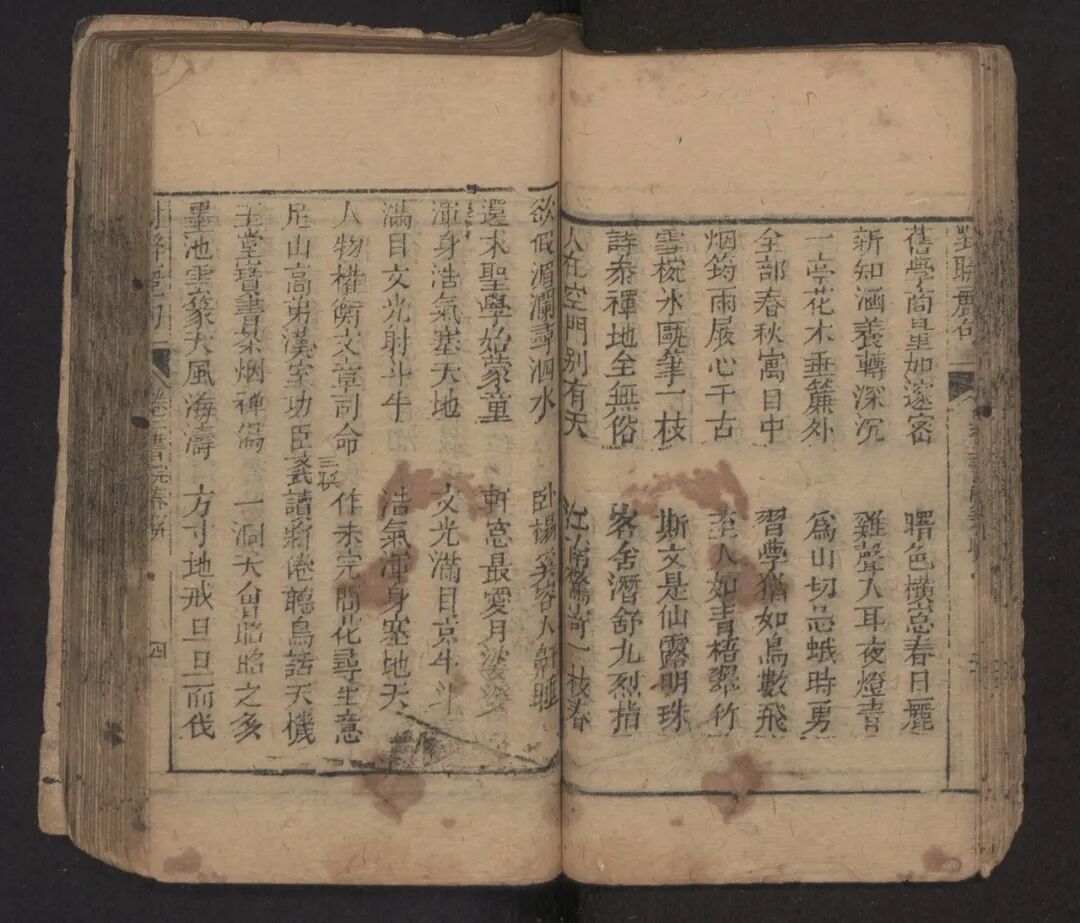 對聯麗句
舊學商量加邃密 曙色橫窓春日麗
新知涵養轉深沉 雞聲入耳夜燈青
一亭花木垂簾外 爲山切忌蛾時勇
全部春秋寓目中 習學猶如鳥數飛
烟笻雨屐心千古 主人如青梧翠竹
雪椀冰甌筆一枝 斯文是仙露明珠
詩泰禪地全無俗 客舍潛舒九烈指
人在空門别有天 江南驚寄一枝春
欲假湄瀾尋泗水 卧楊奚容人鼾睡
還未聖學始蒙童 軒窓最愛月婆娑
渾身浩氣塞天地 文光滿目京牛斗
滿目文光射斗牛 浩氣渾身塞地天
人物權衡文章司命 三長作未完問花尋生意
尼山高弟漢室功臣 讀新倦聽鳥話天機
玉堂寶書茶烟禪榻 一洞天曾昭昭之多
墨池雲篆天風海濤 方寸地戒旦旦而伐
卷 書院春聯
四